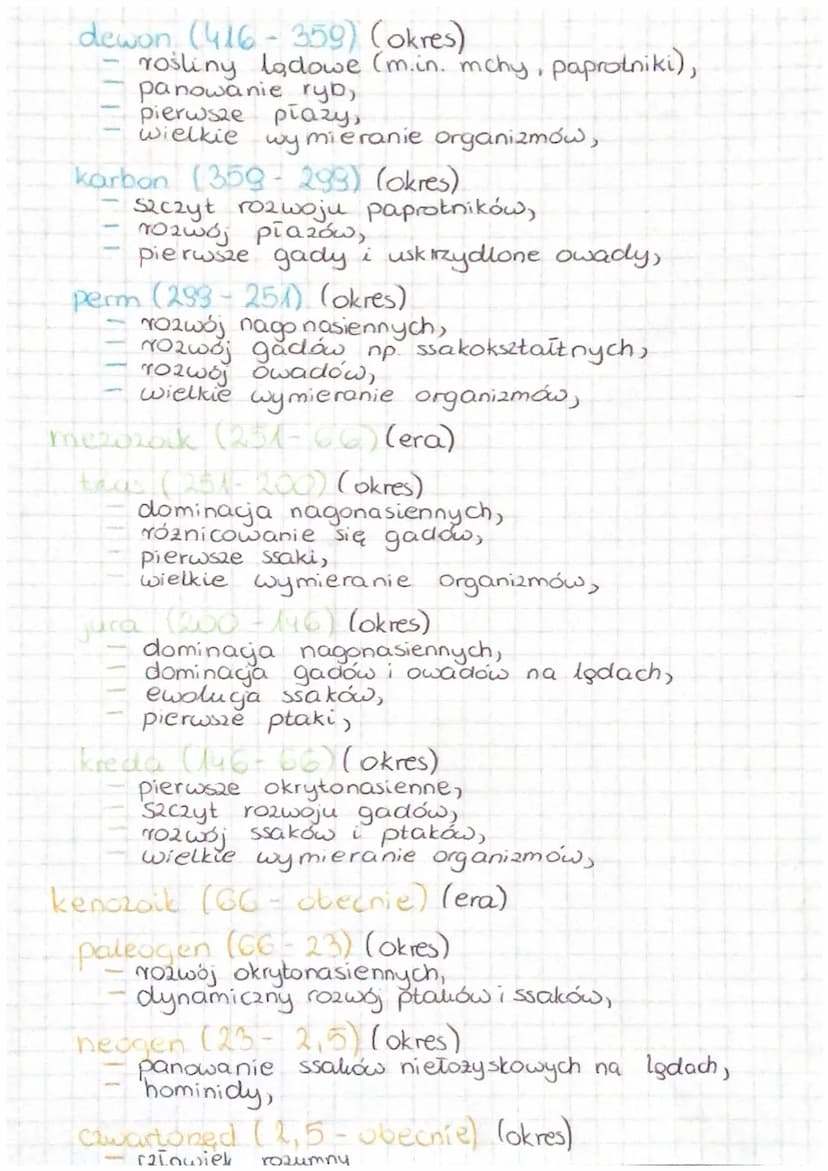 dewon (416 - 359) (okres)
- rośliny lądowe (m.in. mchy, paprotniki),
- panowanie ryb,
- pierwsze płazy,
- wielkie wymieranie organizmów,
karbon (359 - 299) (okres)
- szczyt rozwoju paprotników,
- rozwój płazów,
- pierwsze gady i uskrzydlone owady,
perm (299 - 251) (okres)
- rozwój nagonasiennych,
- rozwój gadów np. ssakokształtnych,
- rozwój owadów,
- wielkie wymieranie organizmów,
mezozoik (251 - 66) (era)
trias (251 - 200) (okres)
- dominacja nagonasiennych,
- różnicowanie się gadów,
- pierwsze ssaki,
- wielkie wymieranie organizmów,
jura (200 - 146) (okres)
- dominacja nagonasiennych,
- dominacja gadów i owadów na lądach,
- ewolucja ssaków,
- pierwsze ptaki,
kreda (146 - 66) (okres)
- pierwsze okrytonasienne,
- szczyt rozwoju gadów,
- rozwój ssaków i ptaków,
- wielkie wymieranie organizmów,
kenozoik (66 - obecnie) (era)
paleogen (66 - 23) (okres)
- rozwój okrytonasiennych,
- dynamiczny rozwój ptaków i ssaków,
neogen (23 - 2,5) (okres)
- panowanie ssaków niełożyskowych na lądach,
- hominidy,
czwartorzęd (2,5 - obecnie) (okres)
- człowiek rozumny